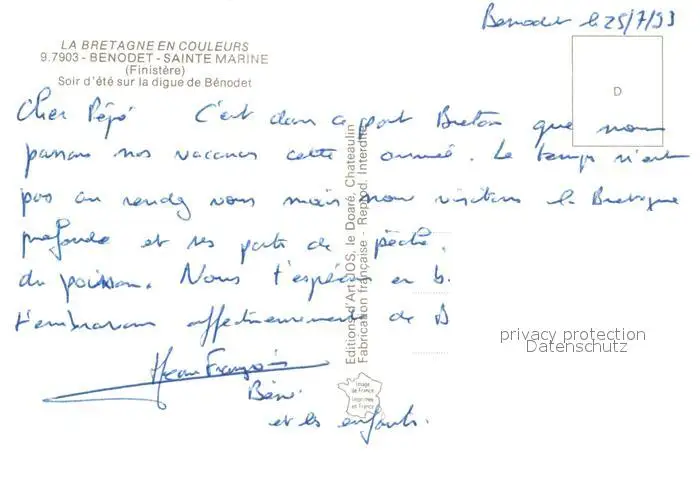 Bénodet le 25/7/93
LA BRETAGNE EN COULEURS
9.7903 - BENODET - SAINTE MARINE
(Finistère)
Soir d'été sur la digue de Bénodet
D
Cher Pépé C'est dans ce port Breton que nous
passons nos vacances cette année. Le temps n'est
pas au rendez vous mais nous visitons la Bretagne
profonde et ses ports de pêche,
du poisson. Nous t'espérons en b.
t'embrassons affectueusement de B
Jean François
et les enfants.
Editions d'Art JOS, le Doaré, Chateaulin
Fabrication française - Reprod. Interdite
Image de France
Imprimée en France
privacy protection
Datenschutz